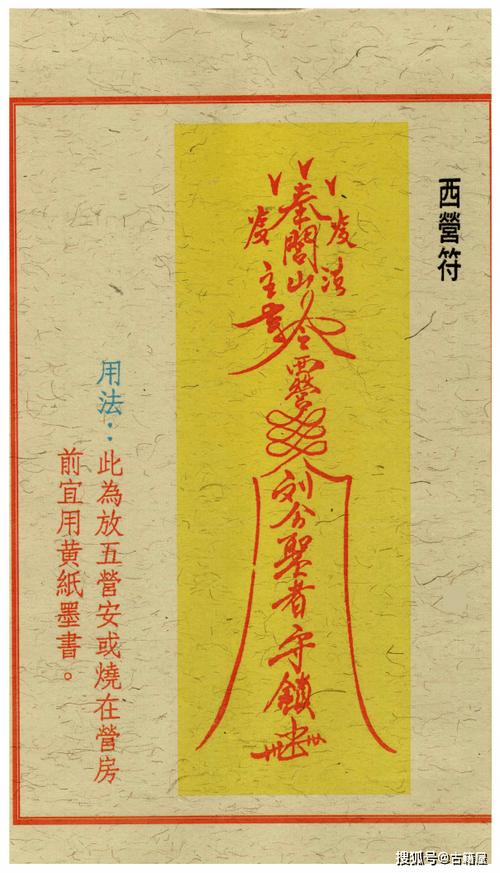 西營符
奉閭山
法
主
令
西營
刘公聖者守
用法：此為放五營安或燒在營房
前宜用黃紙墨書。
搜狐号@古籍屋